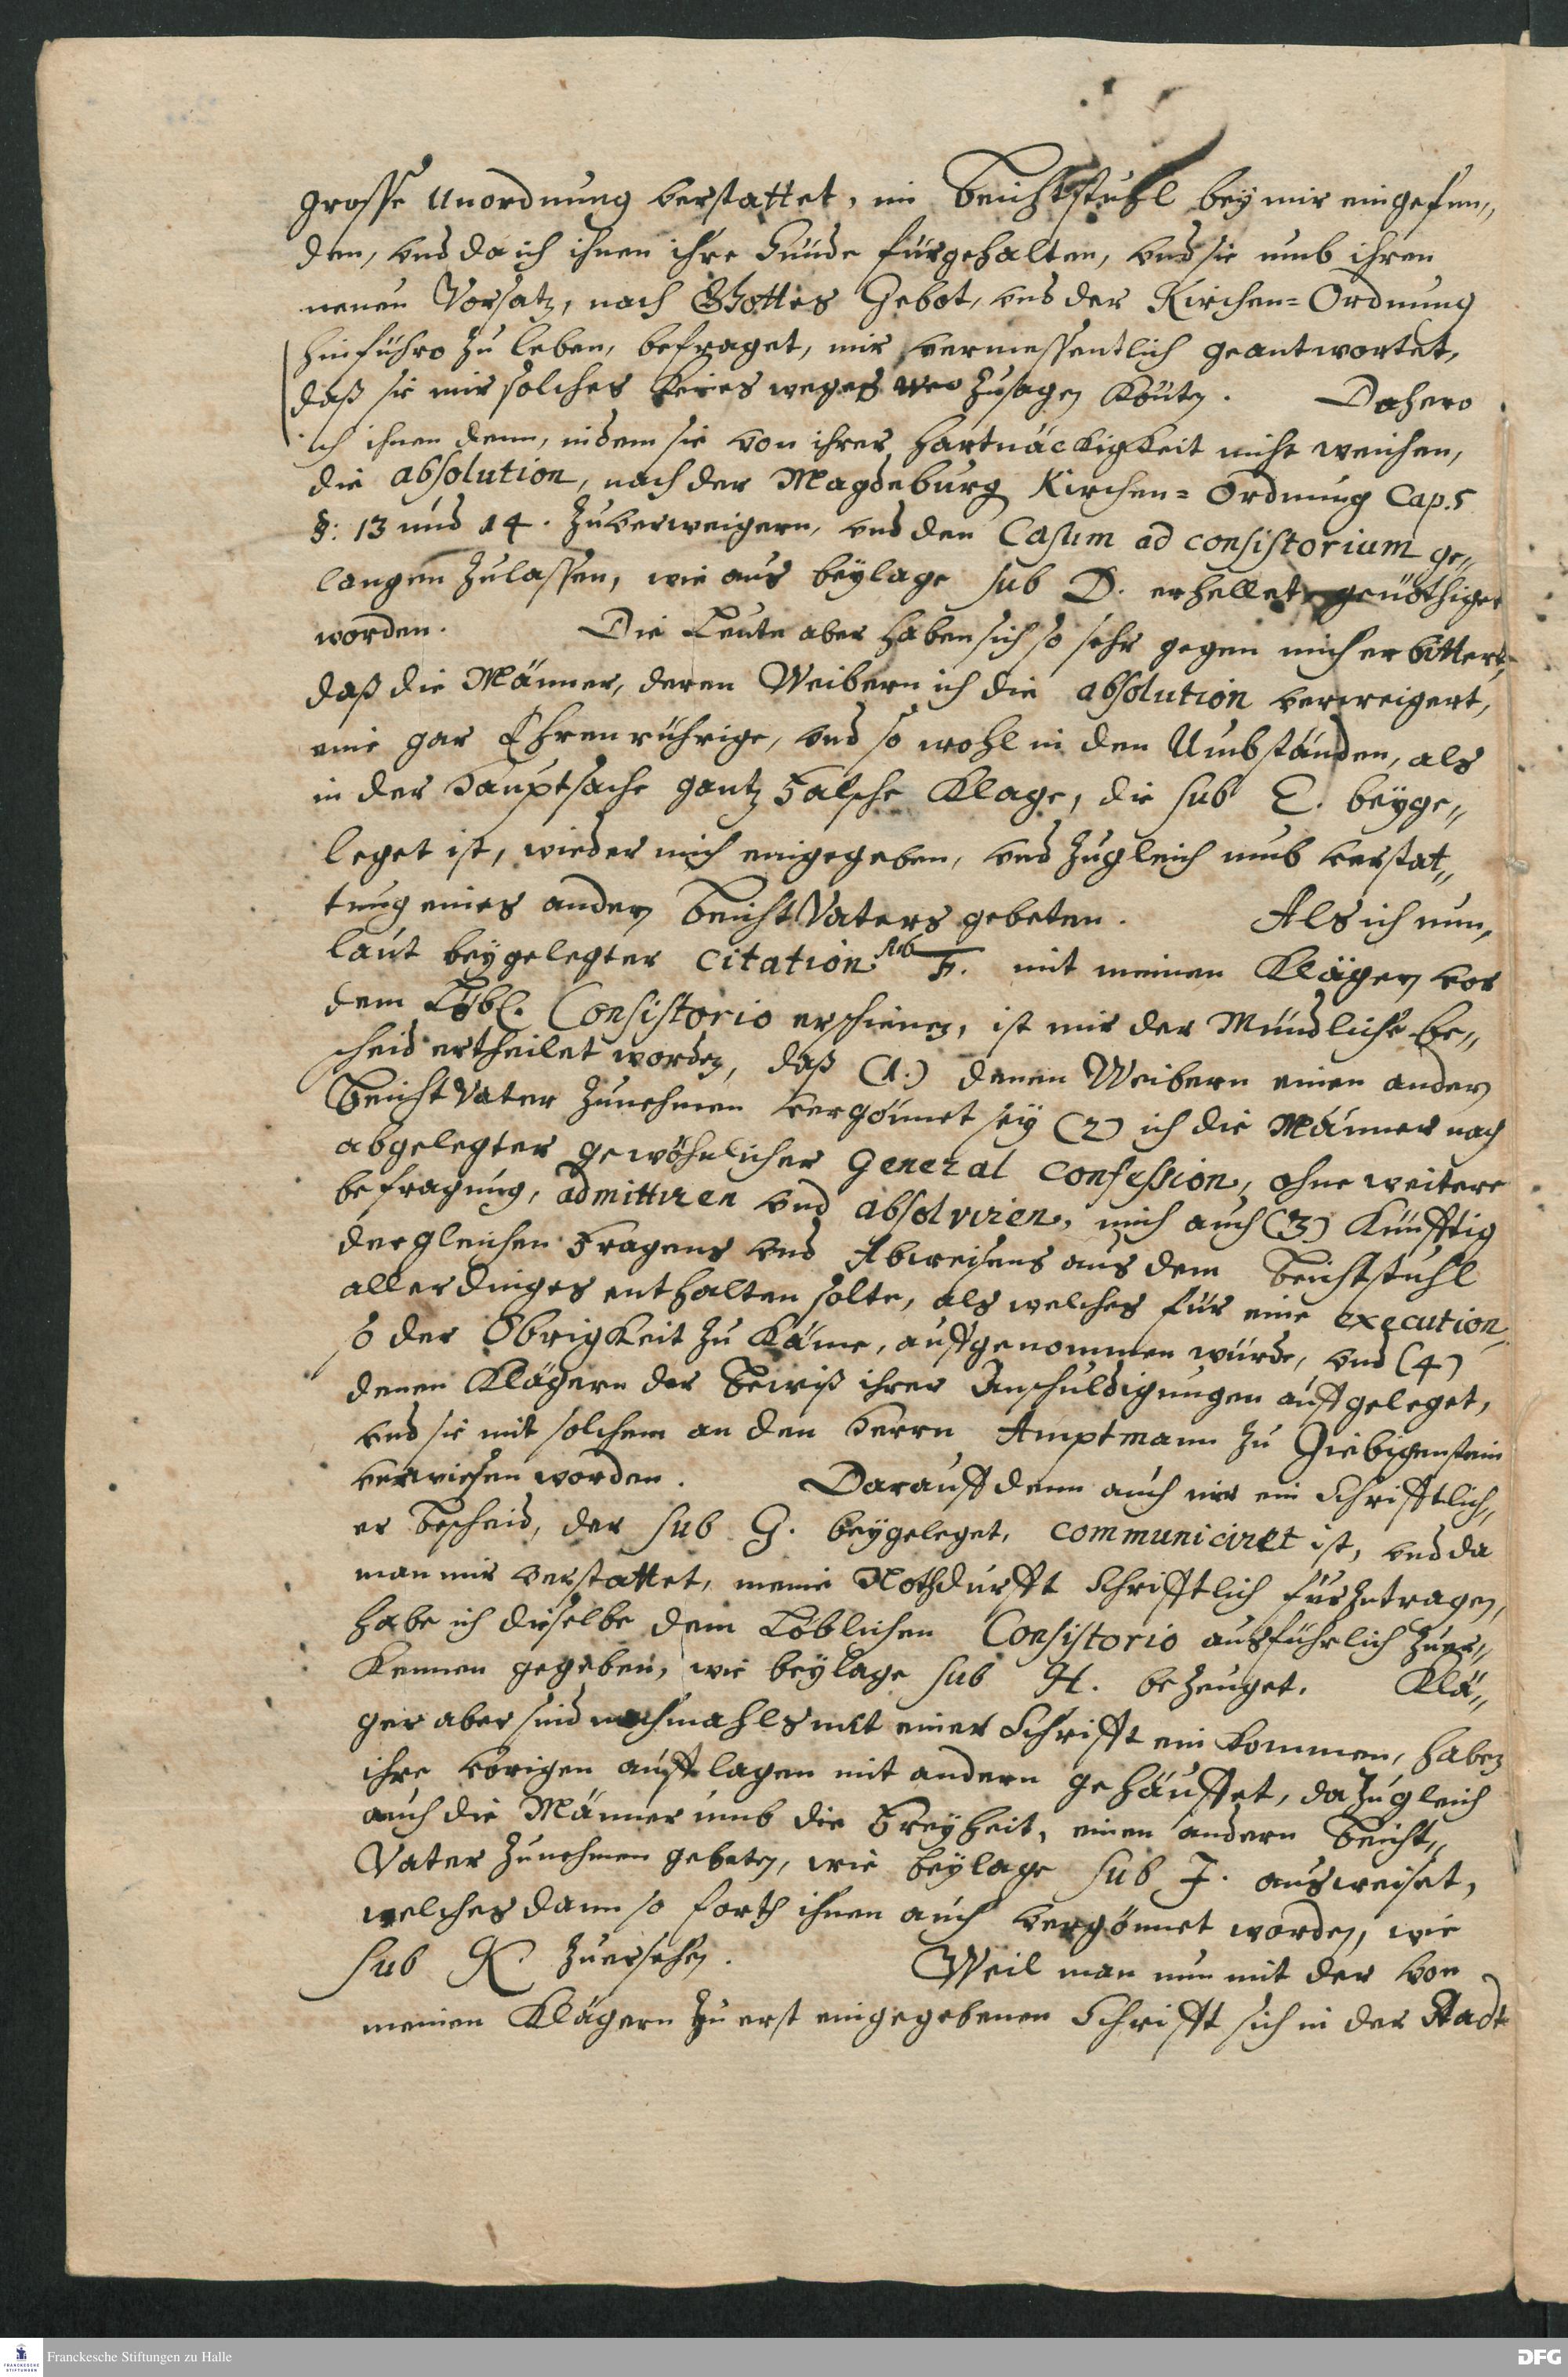 grosse Unordnung verstattet, im Beichtstuhl bey mir eingefun„
den, vnd da ich ihnen ihre Sünde fürgehalten, vnd sie umb ihren
neuen Vorsatz, nach Gottes Gebot, und der Kirchen=Ordnung
hinführo zu leben, befraget, mir vermessentlich geantwortet,
daß sie mir solches keines weges zusagen könten. Dahero
ich ihnen denn, indem sie von ihrer hartnäckigkeit nicht weichen,
die absolution, nach der Magdeburg Kirchen=Ordnung Cap. 5
§. 13 und 14. zuverweigern, vnd den Casum ad consistorium ge„
langen zulassen, wie aus beylage sub D. erhellet, genöthiget
worden. Die Leute aber haben sich so sehr gegen mich erbittert,
daß die Männer, deren Weibern ich die absolution verweigert,
eine gar Ehrenrührige, vnd so wohl in den Umbständen, als
in der Hauptsache gantz Falsche Klage, die sub E. beyge„
leget ist, wieder mich eingegeben, vnd zugleich umb verstat„
tung eines andern BeichtVaters gebeten. Als ich nun,
laut beygelegter citation sub F. mit meinen Klägern vor
dem Löbl. Consistorio erschienen, ist mir der Mündliche be„
scheid ertheilet worden, daß (1.) denen Weibern einen andern
BeichtVater zunehmen vergönnet sey (2) ich die Männer nach
abgelegter gewöhnlicher General Confession, ohne weitere
befragung, admittiren vnd absolviren, mich auch (3) Künfftig
dergleichen Fragens vnd Abweisens aus dem Beichtstuhl
allerdinges enthalten solte, als welches für eine execution,
so der Obrigkeit zu käme, auffgenommen würde, vnd (4)
denen Klägern der Beweiß ihrer Anschuldigungen auffgeleget,
vnd sie mit solchem an den Herrn Amptmann zu Giebigenstein
verwiesen worden. Darauff denn auch mir ein Schrifftlich„
er bescheid, der sub G. beygeleget, communiciret ist, vnd da
man mir verstattet, meine Nothdurfft Schrifftlich fürzutragen,
habe ich dieselbe dem Löblichen Consistorio ausführlich zuer„
kennen gegeben, wie beylage sub H. bezeuget. Klä„
ger aber sind nochmahls mit einer Schrifft ein kommen, haben
ihre vörigen aufflagen mit andern gehäuffet, da zugleich
auch die Männer umb die Freyheit, einen andern Beicht„
Vater zunehmen gebeten, wie beylage sub I. ausweiset,
welches dann so forth ihnen auch vergönnet worden, wie
sub K. zuersehen. Weil man nun mit der von
meinen Klägern zu erst eingegebenen Schrifft sich in der Stadt
Franckesche Stiftungen zu Halle
DFG